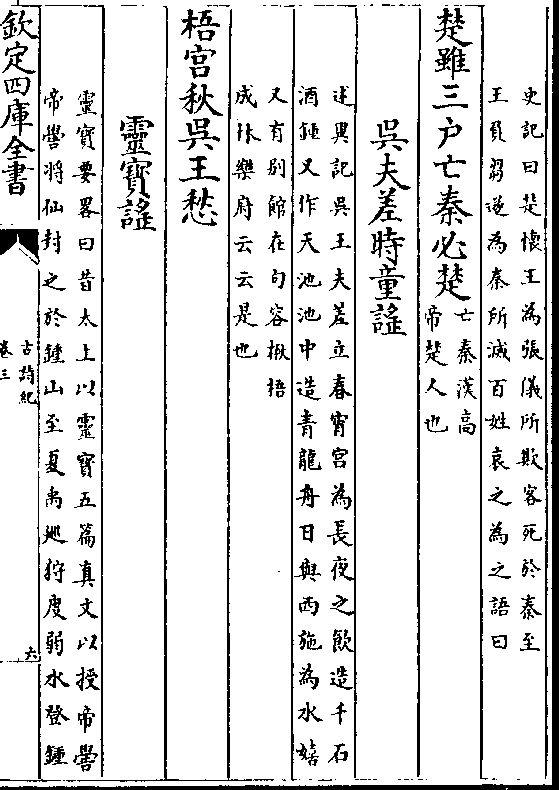 史記曰楚懐王為張儀所欺客死於秦至
王負芻遂為秦所滅百姓哀之為之語曰
楚雖三户亡秦必楚
亡秦漢高
帝楚人也
吳夫差時童謡
述異記吳王夫差立春宵宫為長夜之飲造千石
酒鍾又作天池池中造青龍舟日與西施為水嬉
又有别館在句容楸梧
成林樂府云云是也
梧宫秋吳王愁
靈寳謡
靈寳要畧曰昔太上以靈寳五篇真文以授帝嚳
帝嚳将仙封之於鍾山至夏禹廵狩度弱水登鍾
欽定四庫全書
古詩紀
卷三
六